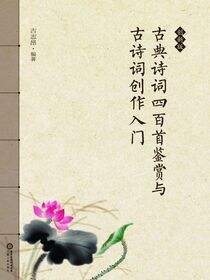 古典诗词四百首鉴赏与
古诗词创作入门
古志昂·编著